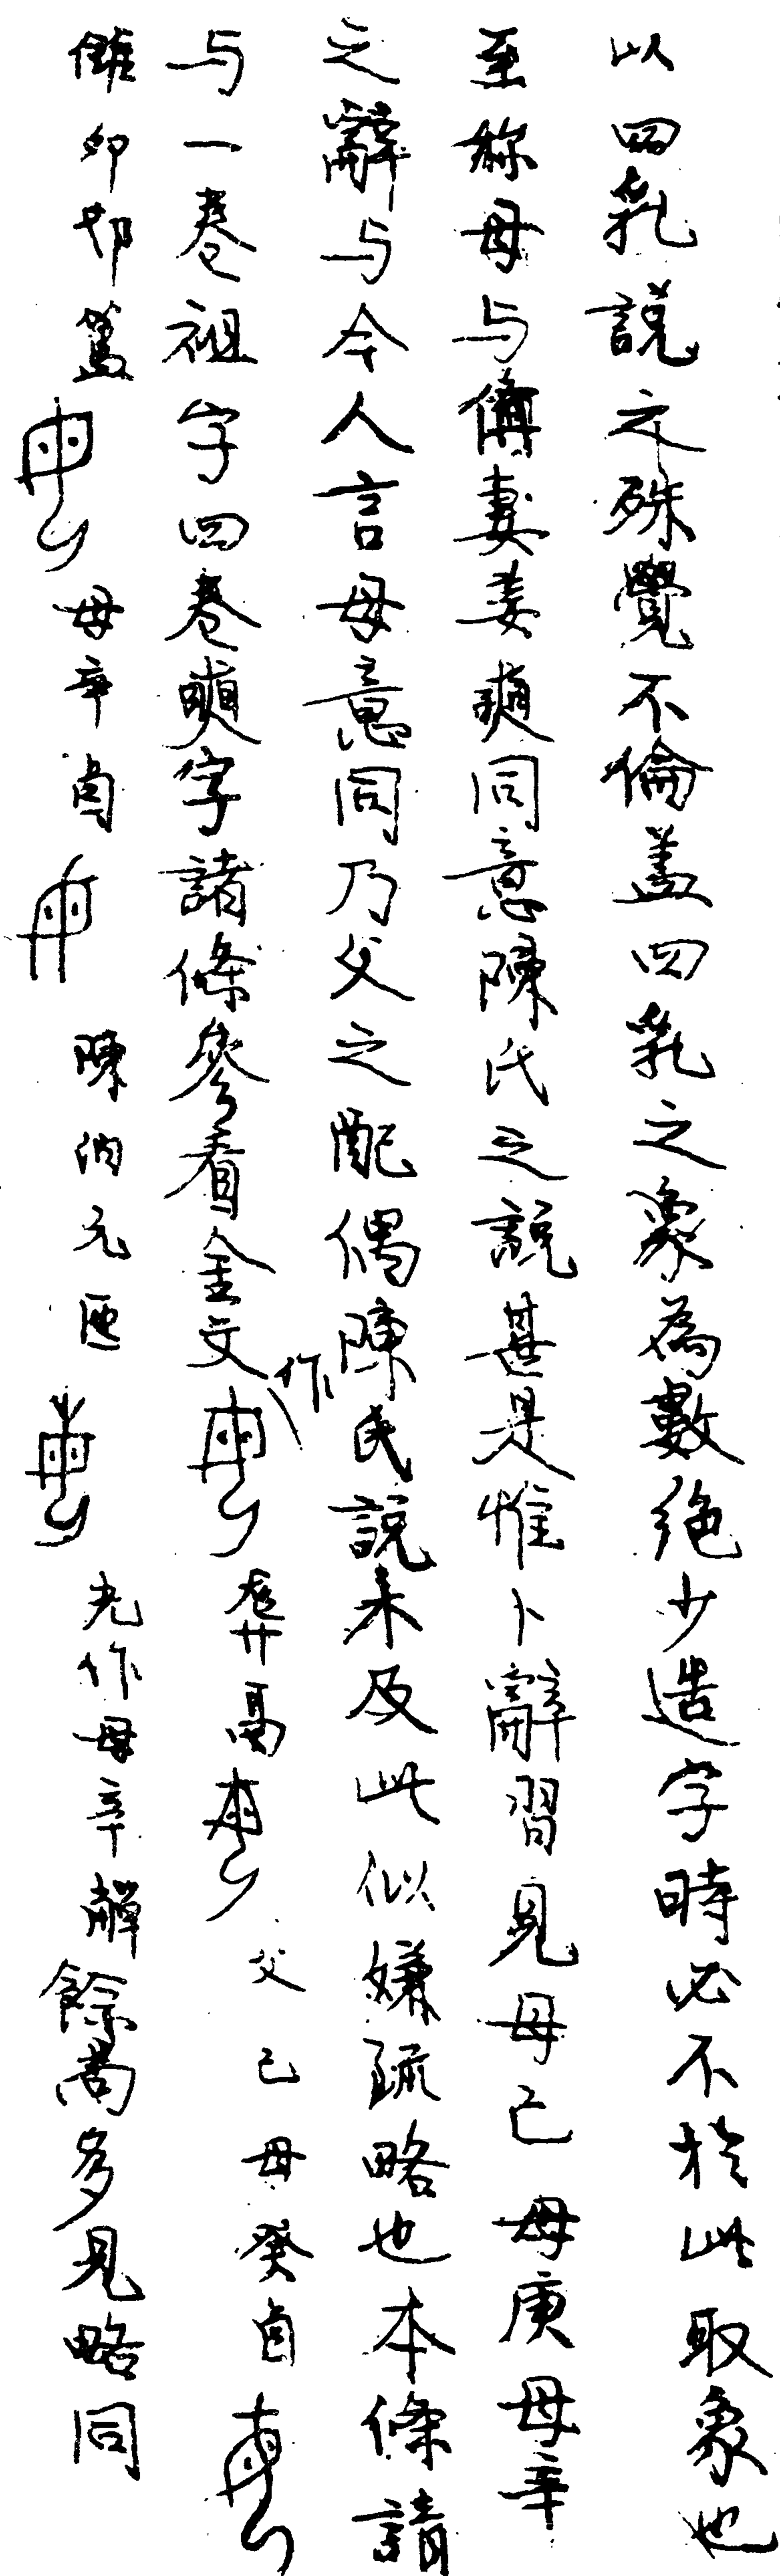 以四乳說之殊覺不倫蓋四乳之象為數絕少造字時必不於此取象也
至稱母与儔妻妾奭同意陳氏之說甚是惟卜辭習見母己母庚母辛
之辭与今人言母意同乃父之配偶陳氏說未及此似嫌疏略也本條請
与一卷祖字四卷奭字諸條參看金文作 鬲 父己母癸卣
雔卯邲簋 母辛卣 陳伯元匜 光作母辛觶餘尚多見略同